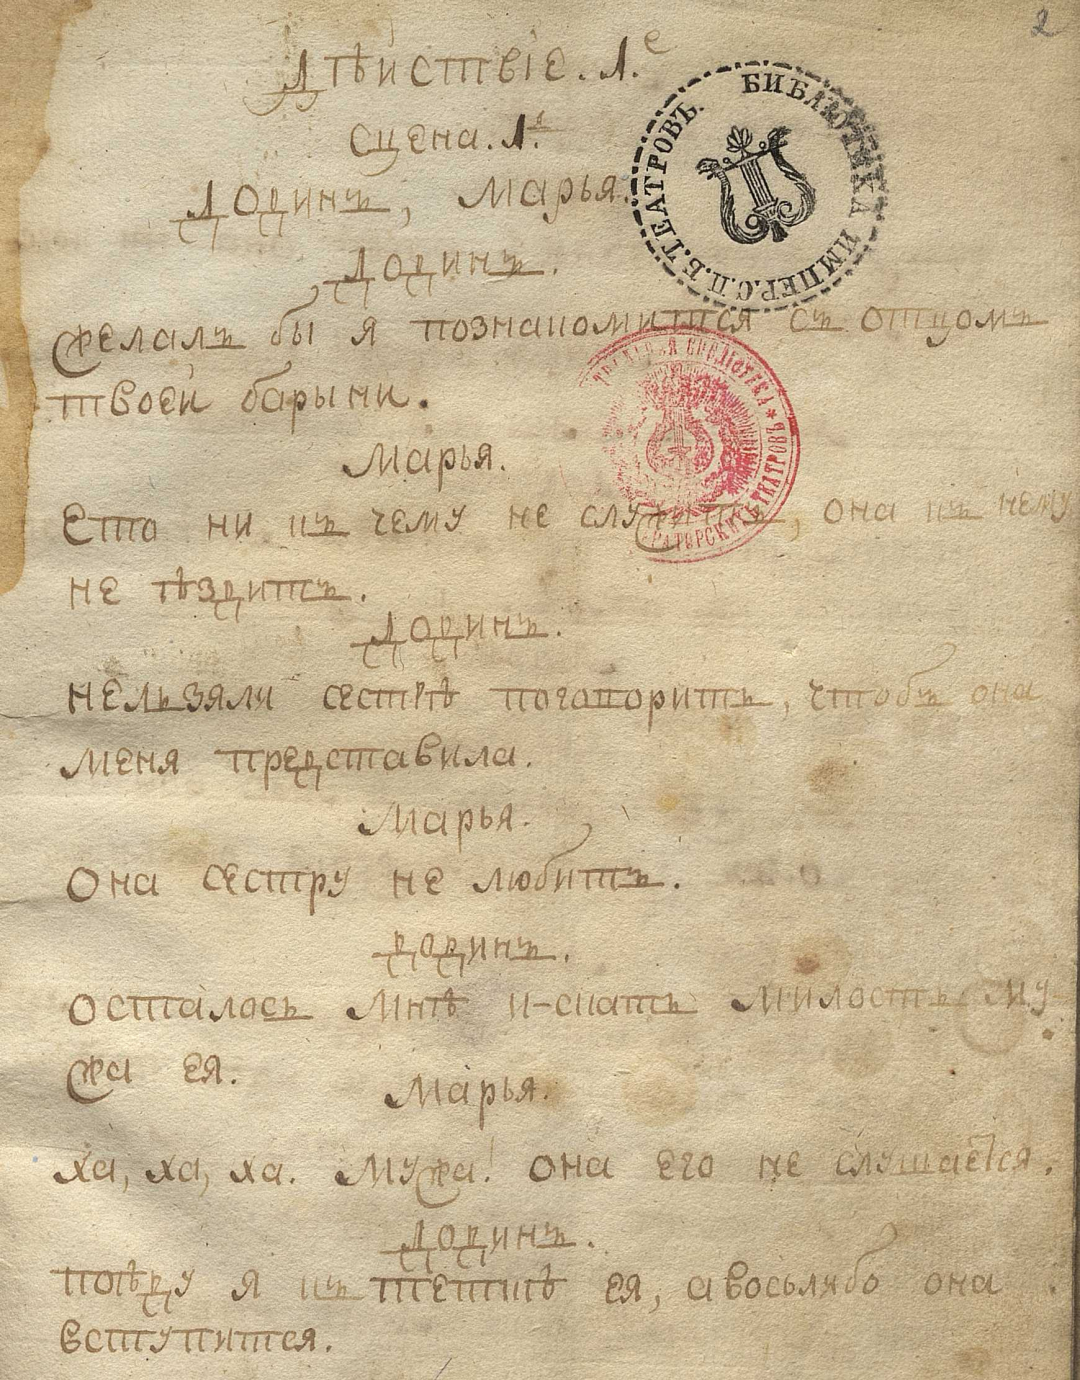 2
Дѣиствіе. 1.е
сцена. 1.я
Додинъ, Марья.
БИБЛІОТЕКА ИМПЕР. С.П.Б. ТЕАТРОВЪ.
Додинъ.
желалъ бы я познакомится съ отцомъ
твоеи барыни.
БИБЛІОТЕКА
ТЕАТРОВЪ
Марья.
Ето ни къ чему не служитъ, она къ нему
не ѣздитъ.
Додинъ.
нельзяли сестрѣ поговорить, чтобъ она
меня представила.
Марья.
Она сестру не любитъ.
додинъ.
осталось мнѣ и-скать милость му
жа ея.
Марья.
ха, ха, ха. Мужа! она его не слушается.
Додинъ.
поѣду я къ теткѣ ея, авосьлибо она
вступится.